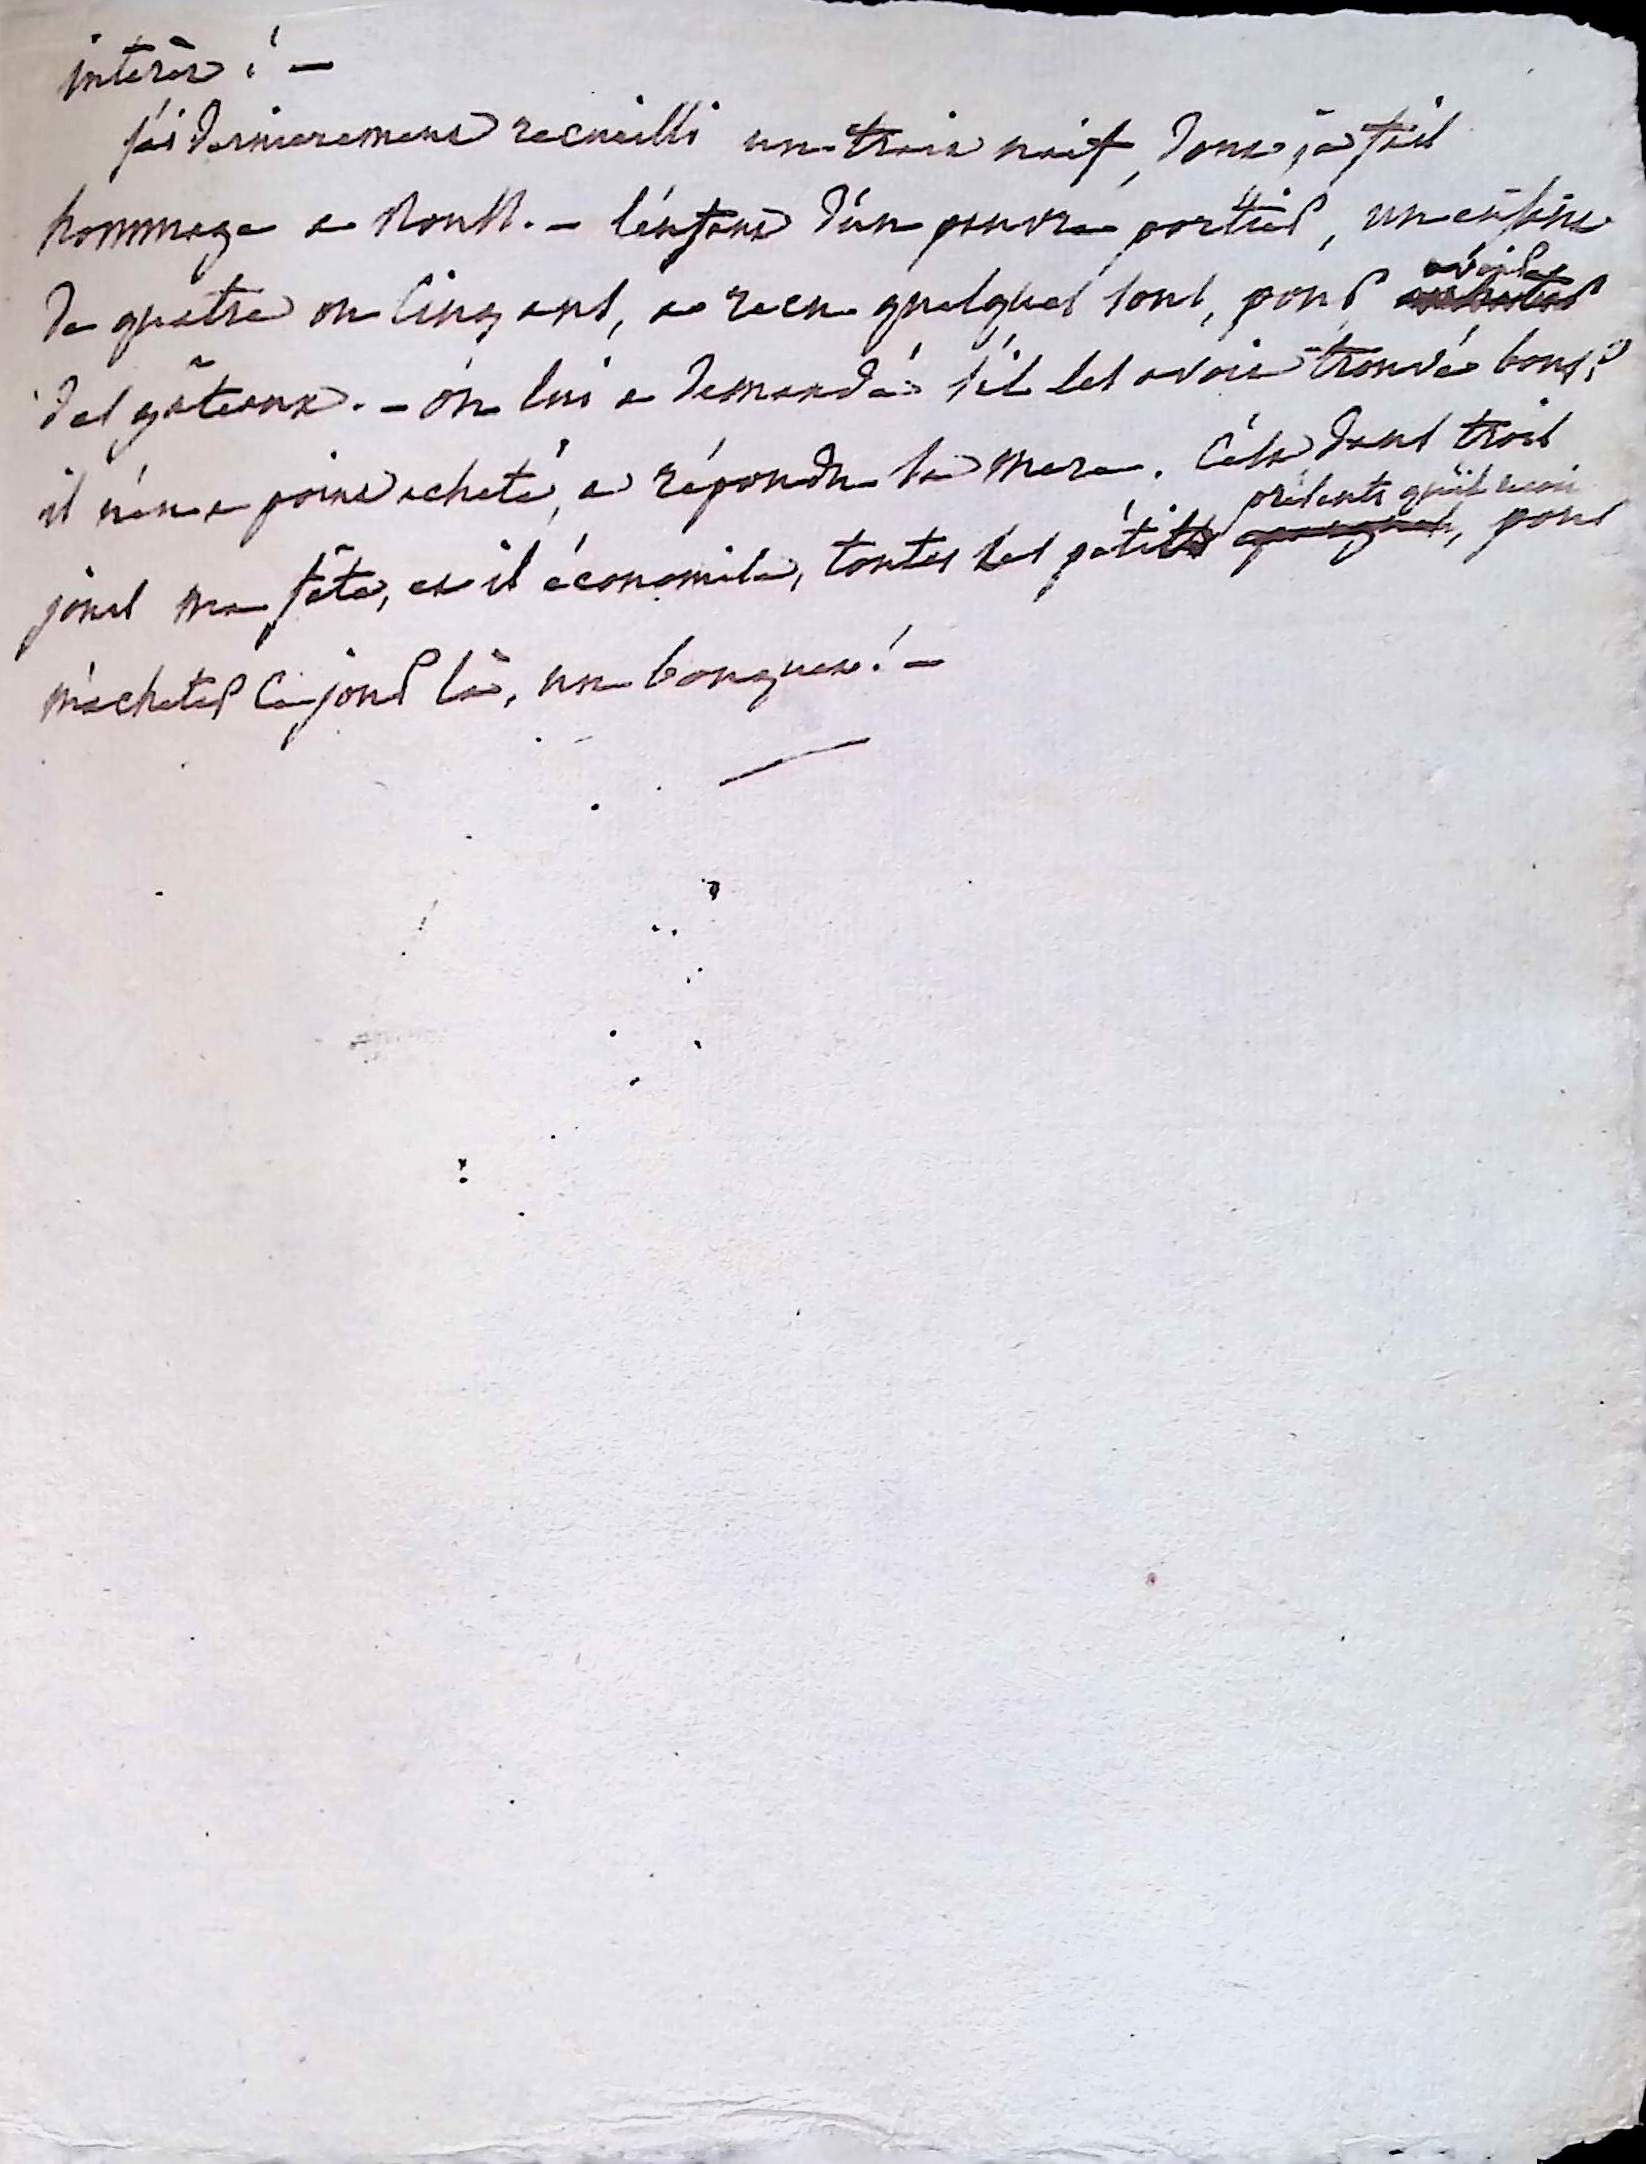 intérêt ! –
j'ai dernierement recueilli un trait naif, dont je fais
hommage a Rouss. – l'enfant d'un pauvre portier, un enfant
de quatre ou cinq ans, a recu quelques sous, pour avoir
des gâteaux. – on lui a demandé s'il les avoit trouvé bons ?
il n'en a point acheté, a répondu la mere. C'est dans trois
jours ma fête, et il économise, toutes les pétits présents qu'il reçoit, pour
m'acheter ce jour là, un bouquet ! –